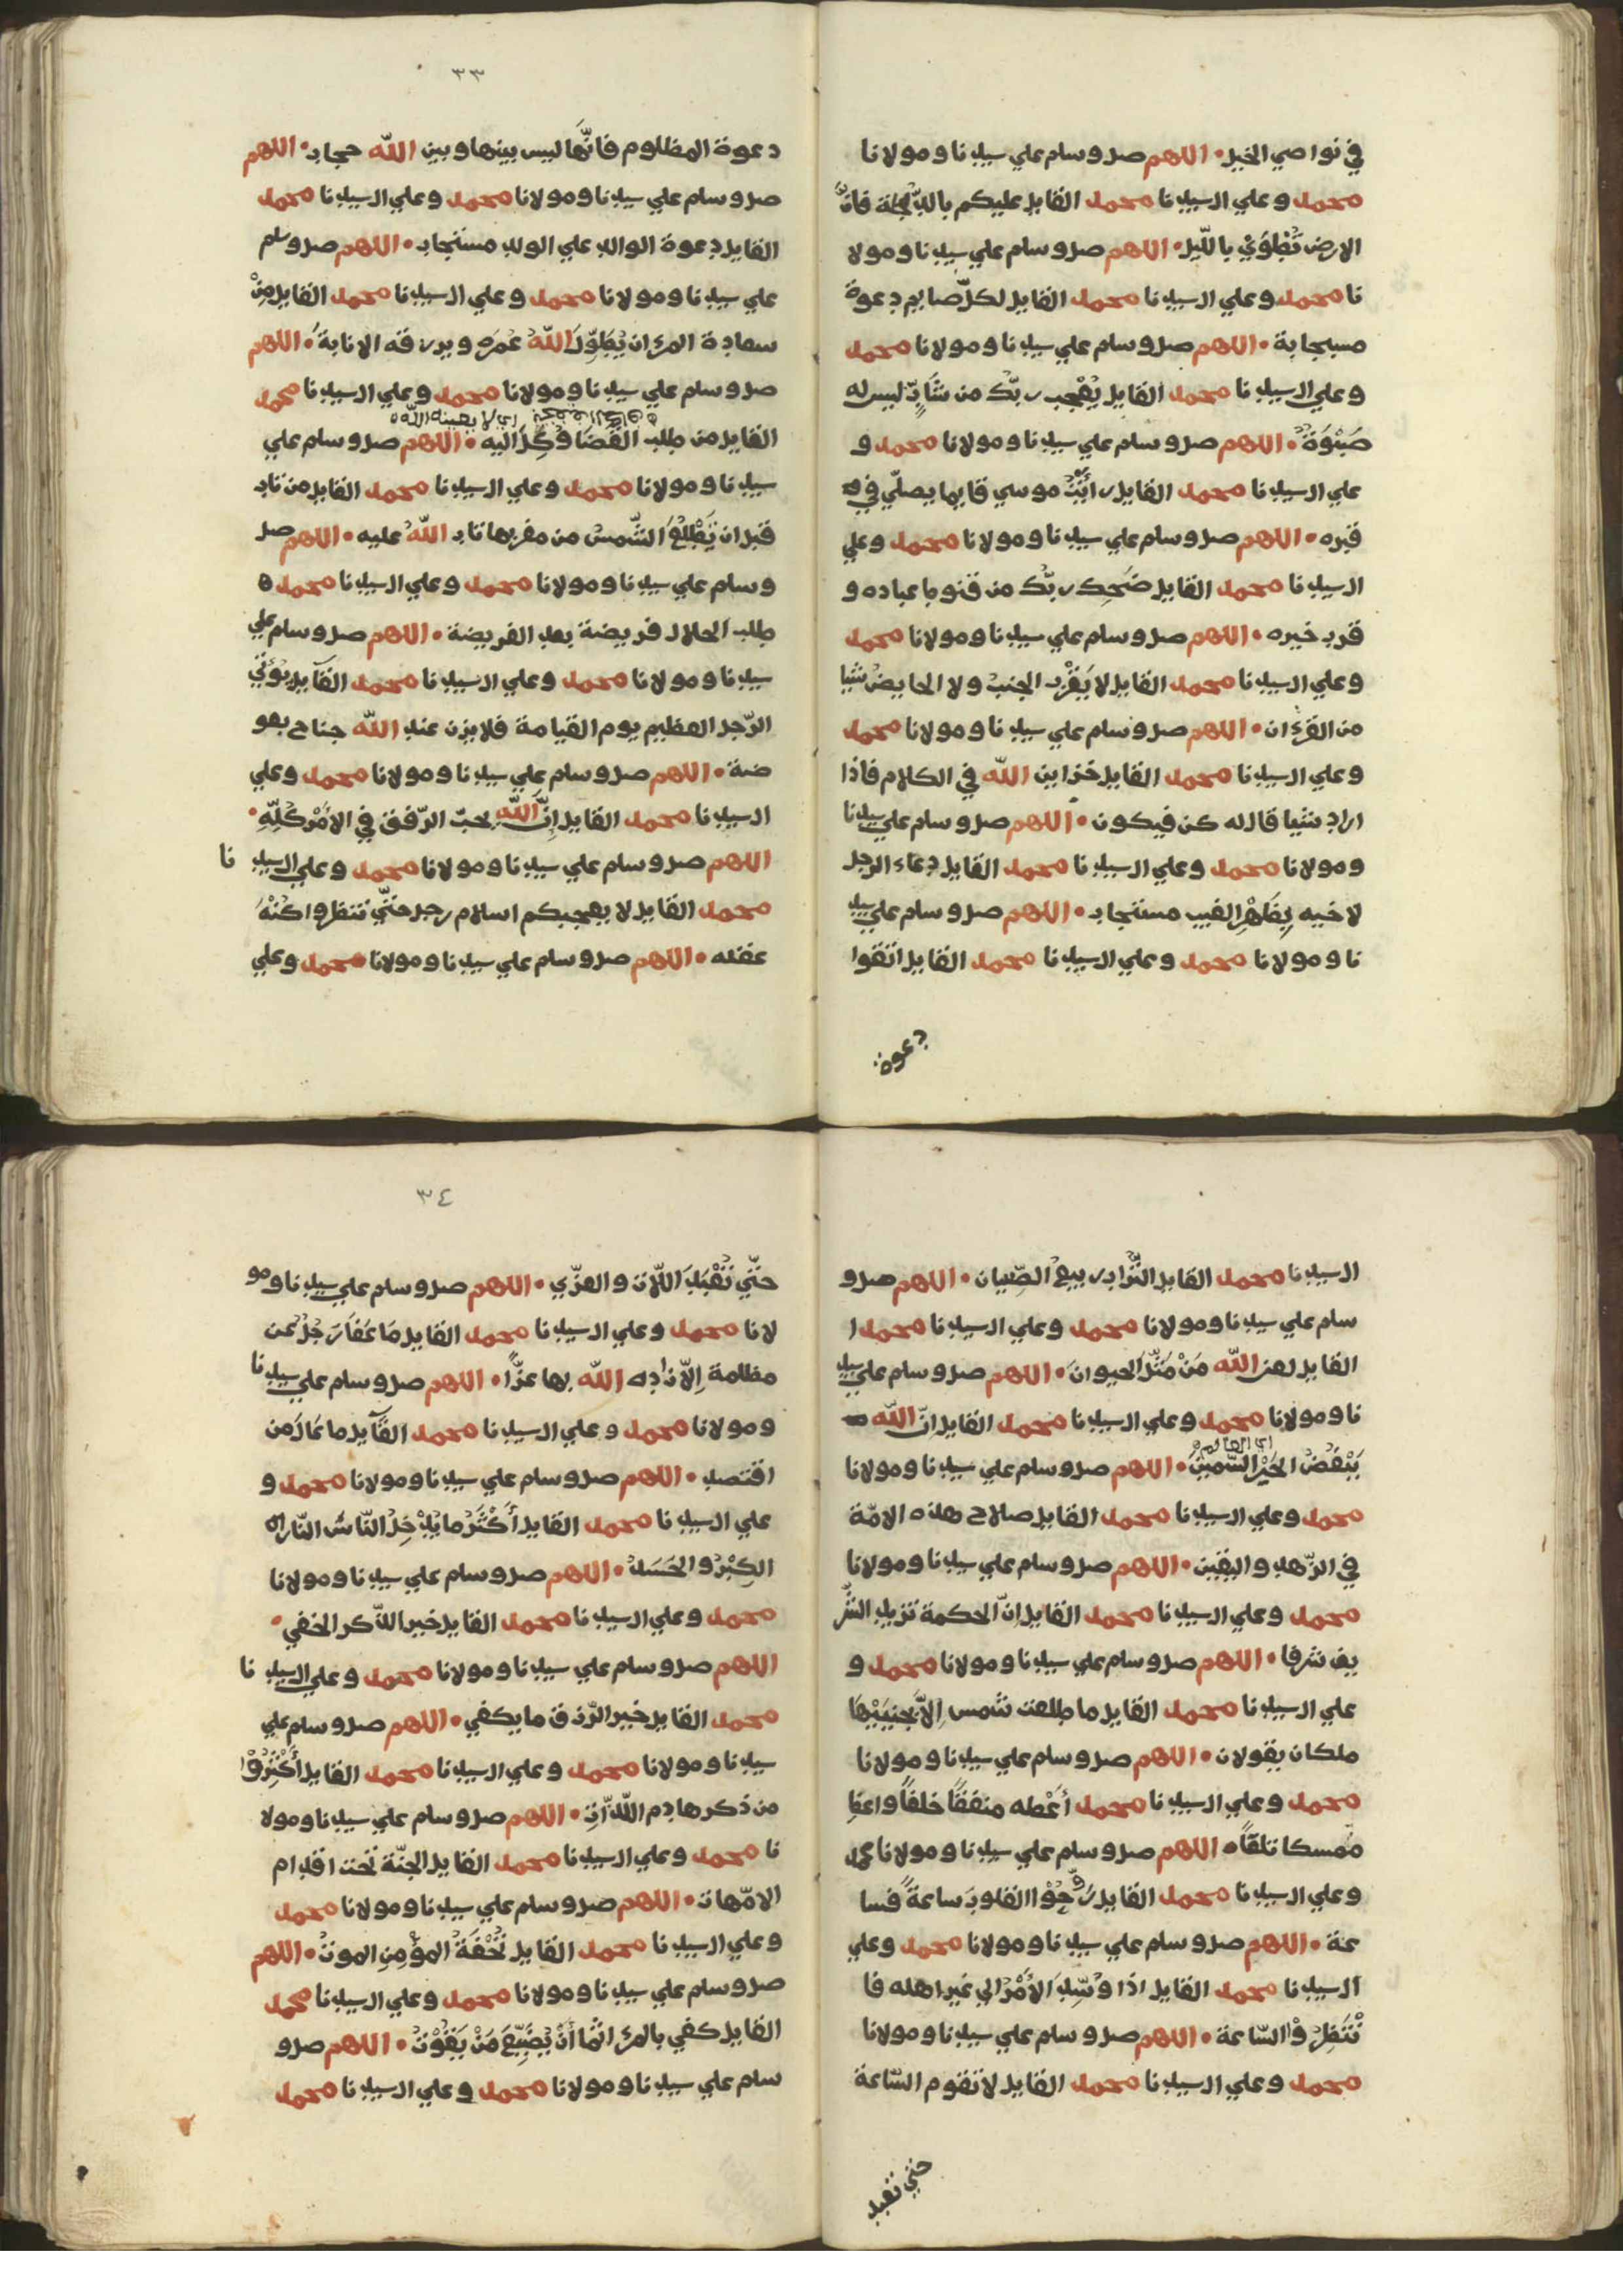 في نواصي الخيل • اللهم صل وسلم علي سيدنا ومولانا
محمد وعلي ال سيدنا محمد القايل عليكم بالدلجة فان
الارض تطوي بالليل • اللهم صل وسلم علي سيدنا ومولا
نا محمد وعلي ال سيدنا محمد القايل لكل صايم دعوة
مسجابة • اللهم صل وسلم علي سيدنا ومولانا محمد
وعلي ال سيدنا محمد القايل يعجب ربك من شاب ليس له
صبوة • اللهم صل وسلم علي سيدنا ومولانا محمد و
علي ال سيدنا محمد القايل رأيت موسي قايما يصلي في
قبره • اللهم صل وسلم علي سيدنا ومولانا محمد وعلي
ال سيدنا محمد القايل ضحك ربك من قنوط عباده و
قرب خيره • اللهم صل وسلم علي سيدنا ومولانا محمد
وعلي ال سيدنا محمد القايل لا يقرب الجنب ولا الحايض شيا
من القرءان • اللهم صل وسلم علي سيدنا ومولانا محمد
وعلي ال سيدنا محمد القايل خزاين الله في الكلام فاذا
اراد شيا قال له كن فيكون • اللهم صل وسلم علي سيدنا
ومولانا محمد وعلي ال سيدنا محمد القايل دعاء الرجل
لاخيه بظهر الغيب مستجاب • اللهم صل وسلم علي سيد
نا ومولانا محمد وعلي ال سيدنا محمد القايل اتقوا
دعوة
٣٣
دعوة المظلوم فانها ليس بينها وبين الله حجاب • اللهم
صل وسلم علي سيدنا ومولانا محمد وعلي ال سيدنا محمد
القايل دعوة الوالد علي الولد مستجاب • اللهم صل وسلم
علي سيدنا ومولانا محمد وعلي ال سيدنا محمد القايل من
سعادة المرء ان يطول الله عمره ويرزقه الانابة • اللهم
صل وسلم علي سيدنا ومولانا محمد وعلي ال سيدنا محمد
اي لا يعينه الله
القايل من طلب القضا وكل اليه • اللهم صل وسلم علي
سيدنا ومولانا محمد وعلي ال سيدنا محمد القايل من تاب
قبل ان تطلع الشمس من مغربها تاب الله عليه • اللهم صل
وسلم علي سيدنا ومولانا محمد وعلي ال سيدنا محمد
طلب الحلال فريضة بعد الفريضة • اللهم صل وسلم علي
سيدنا ومولانا محمد وعلي ال سيدنا محمد القايل يؤتي
الرجل العظيم يوم القيامة فلا يزن عند الله جناح بعو
ضة • اللهم صل وسلم علي سيدنا ومولانا محمد وعلي
ال سيدنا محمد القايل ان الله يحب الرفق في الامر كله •
اللهم صل وسلم علي سيدنا ومولانا محمد وعلي ال سيد نا
محمد القايل لا يعجبكم اسلام رجل حتي تنظروا كنه
عقله • اللهم صل وسلم علي سيدنا ومولانا محمد وعلي
ال سيدنا محمد القايل التراب ربيع الصبيان • اللهم صل و
سلم علي سيدنا ومولانا محمد وعلي ال سيدنا محمد ا
القايل لعن الله من مثل الحيوان • اللهم صل وسلم علي سيد
نا ومولانا محمد وعلي ال سيدنا محمد القايل ان الله
اي العالم
يبغض الحبر السمين • اللهم صل وسلم علي سيدنا ومولانا
محمد وعلي ال سيدنا محمد القايل صلاح هذه الامة
في الزهد واليقين • اللهم صل وسلم علي سيدنا ومولانا
محمد وعلي ال سيدنا محمد القايل ان الحكمة تزيد الشر
يف شرفا • اللهم صل وسلم علي سيدنا ومولانا محمد و
علي ال سيدنا محمد القايل ما طلعت شمس الا بجنبيها
ملكان يقولان • اللهم صل وسلم علي سيدنا ومولانا
محمد وعلي ال سيدنا محمد أعطه منفقا خلفا واعط
ممسكا تلفا • اللهم صل وسلم علي سيدنا ومولانا محمد
وعلي ال سيدنا محمد القايل روحوا القلوب ساعة فسا
عة • اللهم صل وسلم علي سيدنا ومولانا محمد وعلي
ال سيدنا محمد القايل اذا وسد الامر الي غير اهله فا
نتظروا الساعة • اللهم صل وسلم علي سيدنا ومولانا
محمد وعلي ال سيدنا محمد القايل لا تقوم الساعة
حتي تعبد
٣٤
حتي تعبد اللات والعزي • اللهم صل وسلم علي سيدنا ومو
لانا محمد وعلي ال سيدنا محمد القايل ما عفا رجل عن
مظلمة الا زاده الله بها عزا • اللهم صل وسلم علي سيدنا
ومولانا محمد وعلي ال سيدنا محمد القايل ما عال من
اقتصد • اللهم صل وسلم علي سيدنا ومولانا محمد و
علي ال سيدنا محمد القايل أكثر ما يدخل الناس النار
الكبر والحسد • اللهم صل وسلم علي سيدنا ومولانا
محمد وعلي ال سيدنا محمد القايل خير الذكر الخفي •
اللهم صل وسلم علي سيدنا ومولانا محمد وعلي ال سيد نا
محمد القايل خير الرزق ما يكفي • اللهم صل وسلم علي
سيدنا ومولانا محمد وعلي ال سيدنا محمد القايل أكثروا
من ذكر هادم اللذات • اللهم صل وسلم علي سيدنا ومولا
نا محمد وعلي ال سيدنا محمد القايل الجنة تحت اقدام
الامهات • اللهم صل وسلم علي سيدنا ومولانا محمد
وعلي ال سيدنا محمد القايل تحفة المؤمن الموت • اللهم
صل وسلم علي سيدنا ومولانا محمد وعلي ال سيدنا محمد
القايل كفي بالمرء اثما أن يضيع من يقوت • اللهم صل و
سلم علي سيدنا ومولانا محمد وعلي ال سيدنا محمد